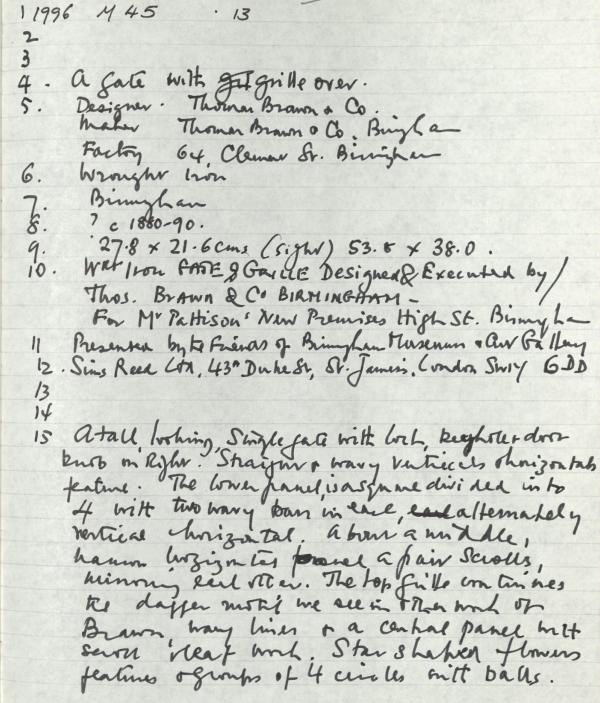 1 1996 M 45 . 13
2
3
4. A gate with grille over.
5. Designer. Thomas Brawn & Co.
Maker Thomas Brawn & Co. Birmingham
Factory 64, Clement St. Birmingham
6. Wrought Iron
7. Birmingham
8. ? c 1880-90.
9. 27.8 x 21.6 cms (sight) 53.5 x 38.0.
10. Wrt Iron GATE & GRILLE Designed & Executed by/
Thos. BRAWN & Co BIRMINGHAM -
For Mr Pattison's New Premises High St. Birmingham
11 Presented by the Friends of Birmingham Museum & Art Gallery
12. Sims Reed Ltd, 43A Duke St, St. James's, London SW1Y 6DD
13
14
15 A tall, looking, single gate with lock, keyhole & door
knob on Right. Straight & wavy verticals & horizontals
feature. The lower panel, is a square divided into
4 with two wavy bars in each, alternately
vertical & horizontal. About a middle,
narrow horizontal panel a pair scrolls,
mirroring each other. The top grille continues
the dagger motif we see in other work of
Brawn, wavy lines & a central panel with
scroll & leaf work. Star shaped flowers
features & groups of 4 circles with balls.